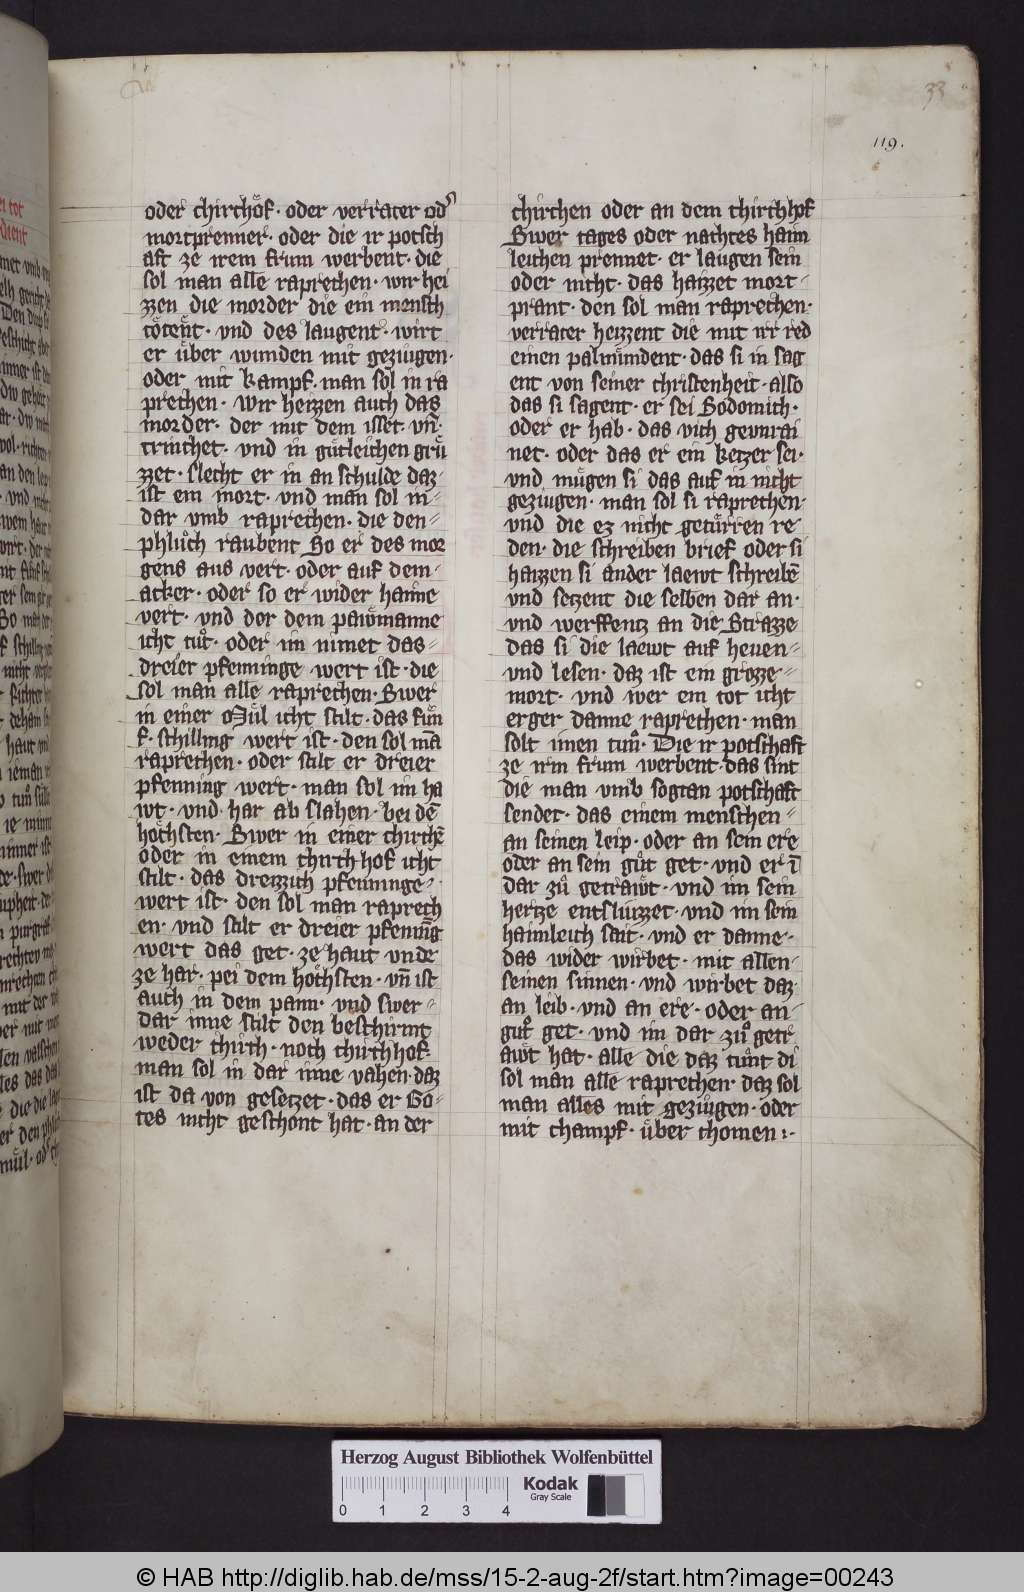 33
119.
oder chirchoͤf · oder verrater od᾽
mortprenner · oder die ir potsch
aft ze irem frum werbent · die
sol man alle raprechen · wir hei
zzen die morder die ein mensch
toͤtent · vnd des laugent · wirt
er uͤber wunden mit geziugen ·
oder mit kampf · man sol in ra
prechen · wir heizzen auch das
morder · der mit dem isset · vn̄ ·
trinchet · vnd in guͤtleichen gruͤ
zzet · slecht er in an schulde daz
ist ein mort · vnd man sol in
dar vmb raprechen · die den
phluͦch raubent So er des mor
gens aus vert · oder auf dem
acker · oder so er wider haime
vert · vnd der dem pawͤmanne
icht tuͦt · oder im nimet das
dreier pfenninge wert ist · die
sol man alle raprechen · Swer
in einer Muͤl icht stilt · das fuͤn
f · schilling wert ist · den sol mā
raprechen · oder stilt er dreier
pfenning wert · man sol im ha
wt · vnd · har ab slahen · bei dē
hoͤchsten · Swer in einer chirchē
oder in einem chirchhof icht
stilt · das dreizzich pfenninge
wert ist · den sol man raprech
en · vnd stilt er dreier pfennīg
wert das get · ze haut vnde
ze har · pei dem hoͤchsten · vn̄ ist
auch in dem pann · vnd swer
dar inne stilt den beschirmt
weder chirch · noch chirchhof ·
man sol in dar inne vahen · daz
ist da von gesetzet · das er Go
tes nicht geschont hat · an der
chirchen oder an dem chirchhof
Swer tages oder nachtes haim
leichen prennet · er laugen sein
oder nicht · das haizzet mort
prant · den sol man raprechen ·
verrater heizzent die mit irr red
einen palmuͤndent · das si in sag
ent von seiner christenheit · also
das si sagent · er sei Sodomich ·
oder er hab · das vich gevnrai
net · oder das er ein ketzer sei ·
vnd muͤgen si das auf in nicht
geziugen · man sol si raprechen ·
vnd die ez nicht getuͤrren re
den · die schreiben brief oder si
haizzen si ander laewt schreibē
vnd setzent die selben dar an ·
vnd werffentz an die Strazze
das si die laewt auf heven
vnd lesen · daz ist ein grozze
mort · vnd wer ein tot icht
erger danne raprechen · man
solt imen tuͦn · Die ir potschaft
ze irm frum werbent · das sint
die man vmb sogtan potschaft
sendet · das einem menschen
an seinen leip · oder an sein ere
oder an sein guͦt get · vnd er ī
dar zuͦ getrawt · vnd im sein
hertze entsluizzet · vnd im sein
haimleich sait · vnd er danne ·
das wider wirbet · mit allen
seinen sinnen · vnd wirbet daz
an leib · vnd an ere · oder an
guͦt get · vnd im dar zuͦ getr
awt hat · alle die daz tuͦnt di
sol man alle raprechen · daz sol
man alles mit geziugen · oder
mit champf · uͤber chomen :·
Herzog August Bibliothek Wolfenbüttel
Kodak
Gray Scale
0 1 2 3 4
© HAB http://diglib.hab.de/mss/15-2-aug-2f/start.htm?image=00243